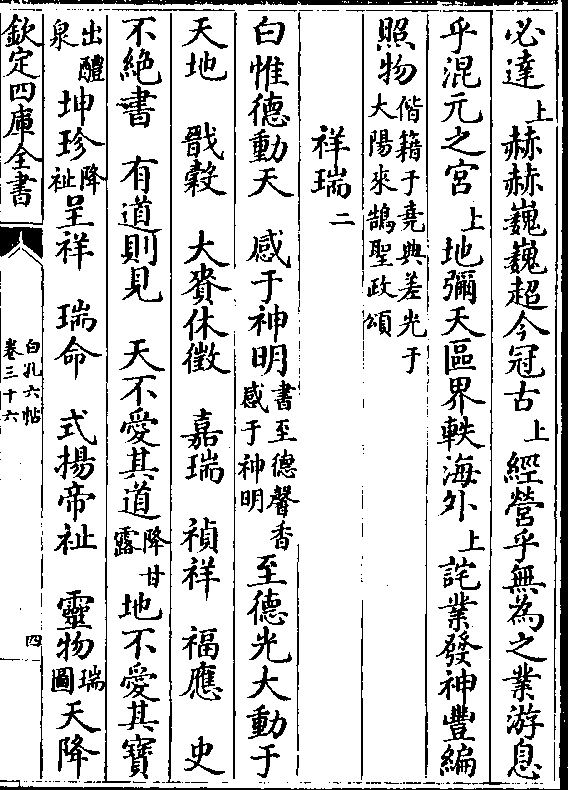 必達上赫赫巍巍超今冠古上經營乎無為之業游息
乎混元之宫上地彌天區界軼海外上詫業發神豐編
照物偕籍于堯典差光于大陽來鵠聖政頌
祥瑞二
白惟德動天 感于神明書至德馨香感于神明至德光大動于
天地 戩糓 大賚休徵 嘉瑞 禎祥 福應 史
不絶書 有道則見 天不愛其道降甘露地不愛其寶
出醴泉坤珍降祉呈祥 瑞命 式揚帝祉 靈物瑞圖天降
欽定四庫全書
白孔六帖
卷三十六
四